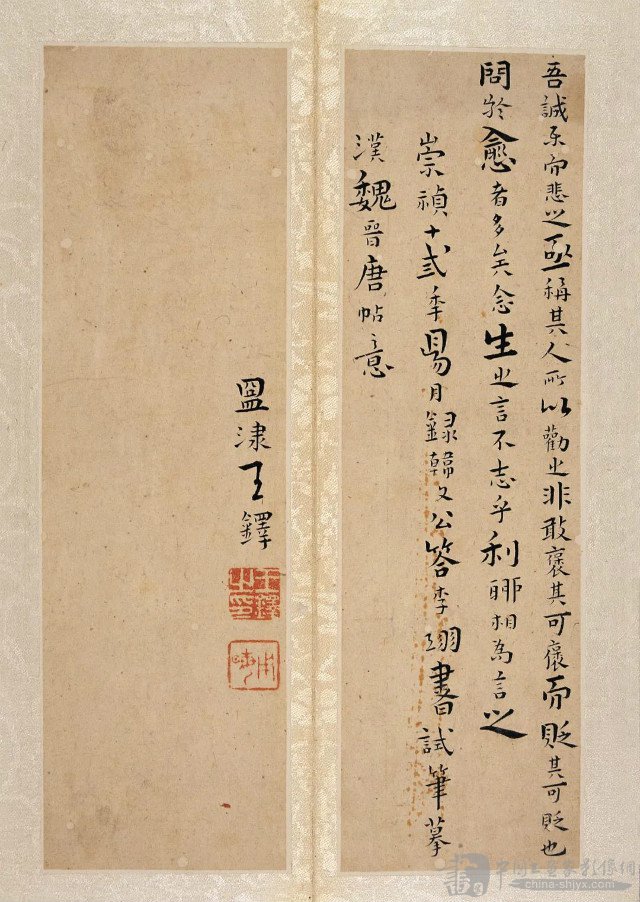 吾誠乐而悲之亟稱其人所以勸之非敢褒其可褒而貶其可貶也
問於愈者多矣念生之言不志乎利聊相為言之
崇禎十弍年昜月錄韓文公答李翊書試筆摹
漢魏晉唐帖意
孟津王鐸
王鐸之印
書
中国书画家影像網
china-shjyx.com